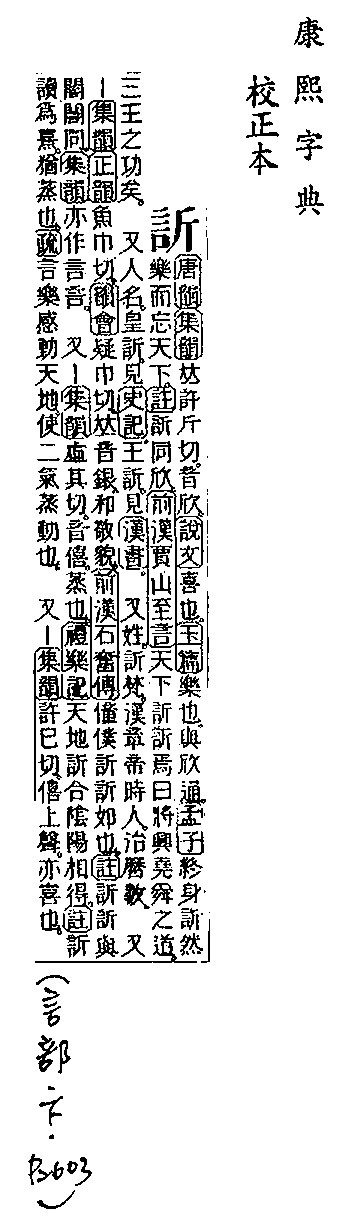 康熙字典
校正本
訢
唐韻集韻𠀤許斤切音欣說文喜也玉篇樂也與欣通孟子終身訢然
樂而忘天下註訢同欣前漢賈山至言天下訢訢焉曰將興堯舜之道
三王之功矣 又人名皇訢見史記王訢見漢書 又姓訢梵漢章帝時人治曆數 又
丨集韻正韻魚巾切韻會疑巾切𠀤音銀和敬貌前漢石奮傳僮僕訢訢如也註訢訢與
誾誾同集韻亦作言䇾 又丨集韻虛其切音僖蒸也禮樂記天地訢合陰陽相得註訢
讀爲熹猶蒸也疏言樂感動天地使二氣蒸動也 又丨集韻許已切僖上聲亦喜也
(言部 卞.
P.603)